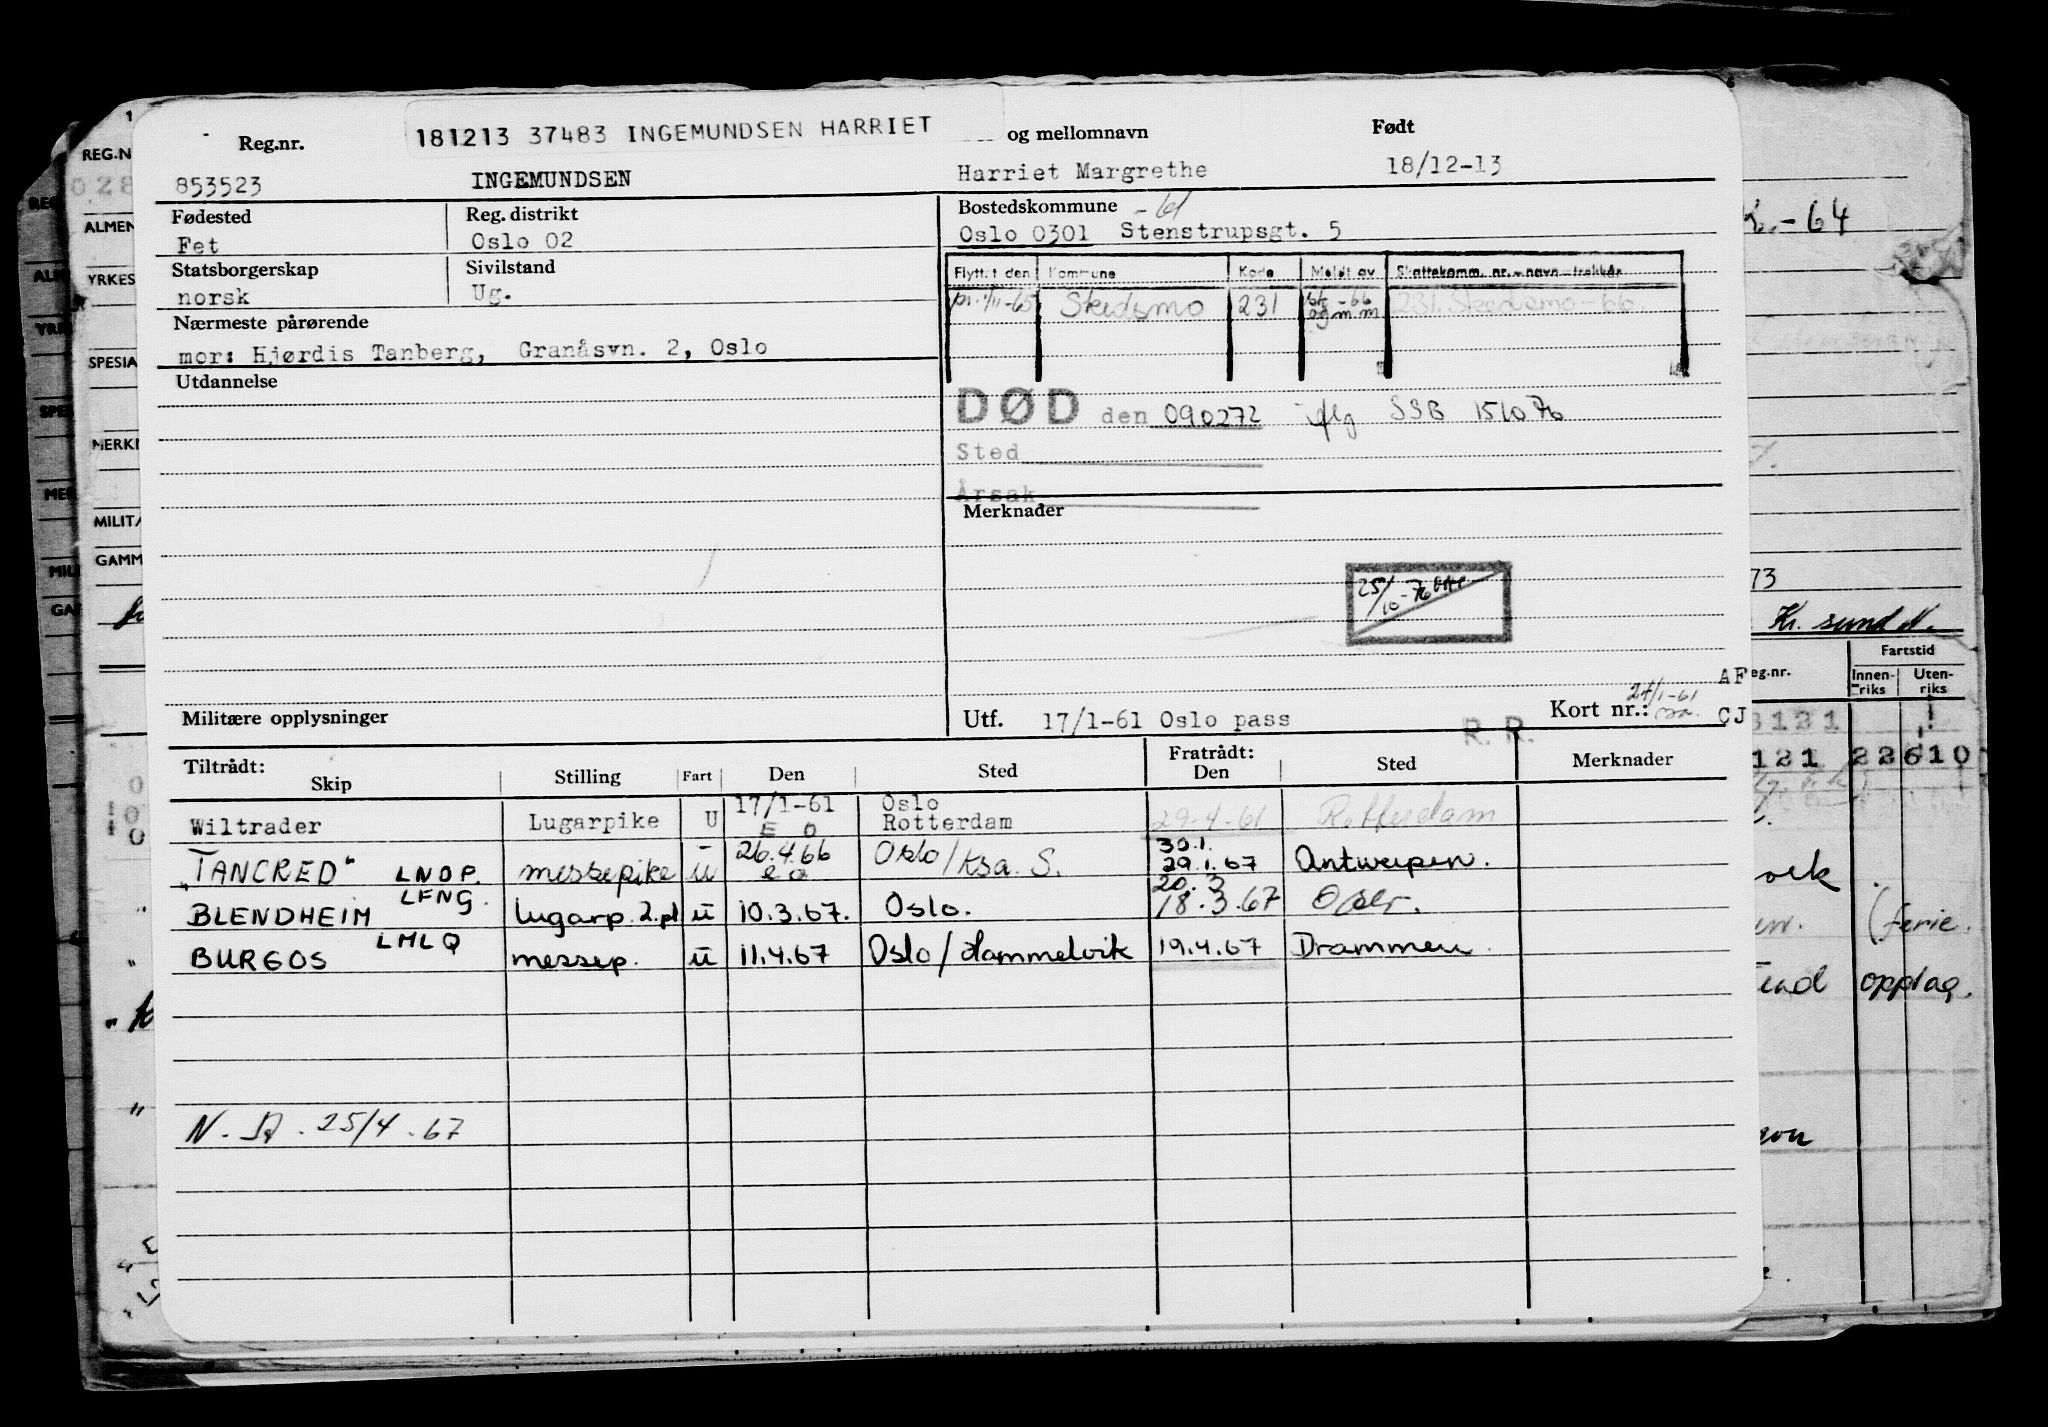 181213 37483 INGEMUNDSEN HARRIET
Reg.nr. og mellomnavn Født
853523 INGEMUNDSEN Harriet Margrethe 18/12-13
Fødested Reg. distrikt Bostedskommune -61
Fet Oslo 02 Oslo 0301 Stenstrupsgt. 5
Statsborgerskap Sivilstand
norsk Ug.
Flytt.t den Kommune Kode Meldt av Skattekomm. nr. - navn - trekkår
pr. 1/11-65 Skedsmo 231 sk-66 og m.m 231. Skedsmo-66.
Nærmeste pårørende
mor: Hjørdis Tanberg, Granåsvn. 2, Oslo
Utdannelse
DØD den 090272 iflg SSB 151076
Sted
Årsak
Merknader
25/10-76
Militære opplysninger
Utf. 17/1-61 Oslo pass
R. R.
Kort nr.: 24/1-61
Tiltrådt: Fratrådt:
Skip Stilling Fart Den Sted Den Sted Merknader
Wiltrader Lugarpike U 17/1-61 E O Oslo Rotterdam 29-4-61 Rotterdam
"TANCRED" LNOP. messepike u 26.4.66 e o Oslo/Ksa. S. 30.1. 29.1.67 Antwerpen.
BLENDHEIM LFNG. lugarp. 2.pl u 10.3.67. Oslo. 20. 3 18.3.67 Oslo.
BURGOS LMLQ messep. u 11.4.67 Oslo/Hammelvik 19.4.67 Drammen.
N. A. 25/4.67
REG.N
028
ALMEN
YRKES
SPESIA
MERKN
MILIT
GAMM
K.-64
73
Kr. sund N.
Fartstid
eg.nr. Innen-riks Uten-riks
AF
CJ
3121
121 22610
(ferie.
oppdag.